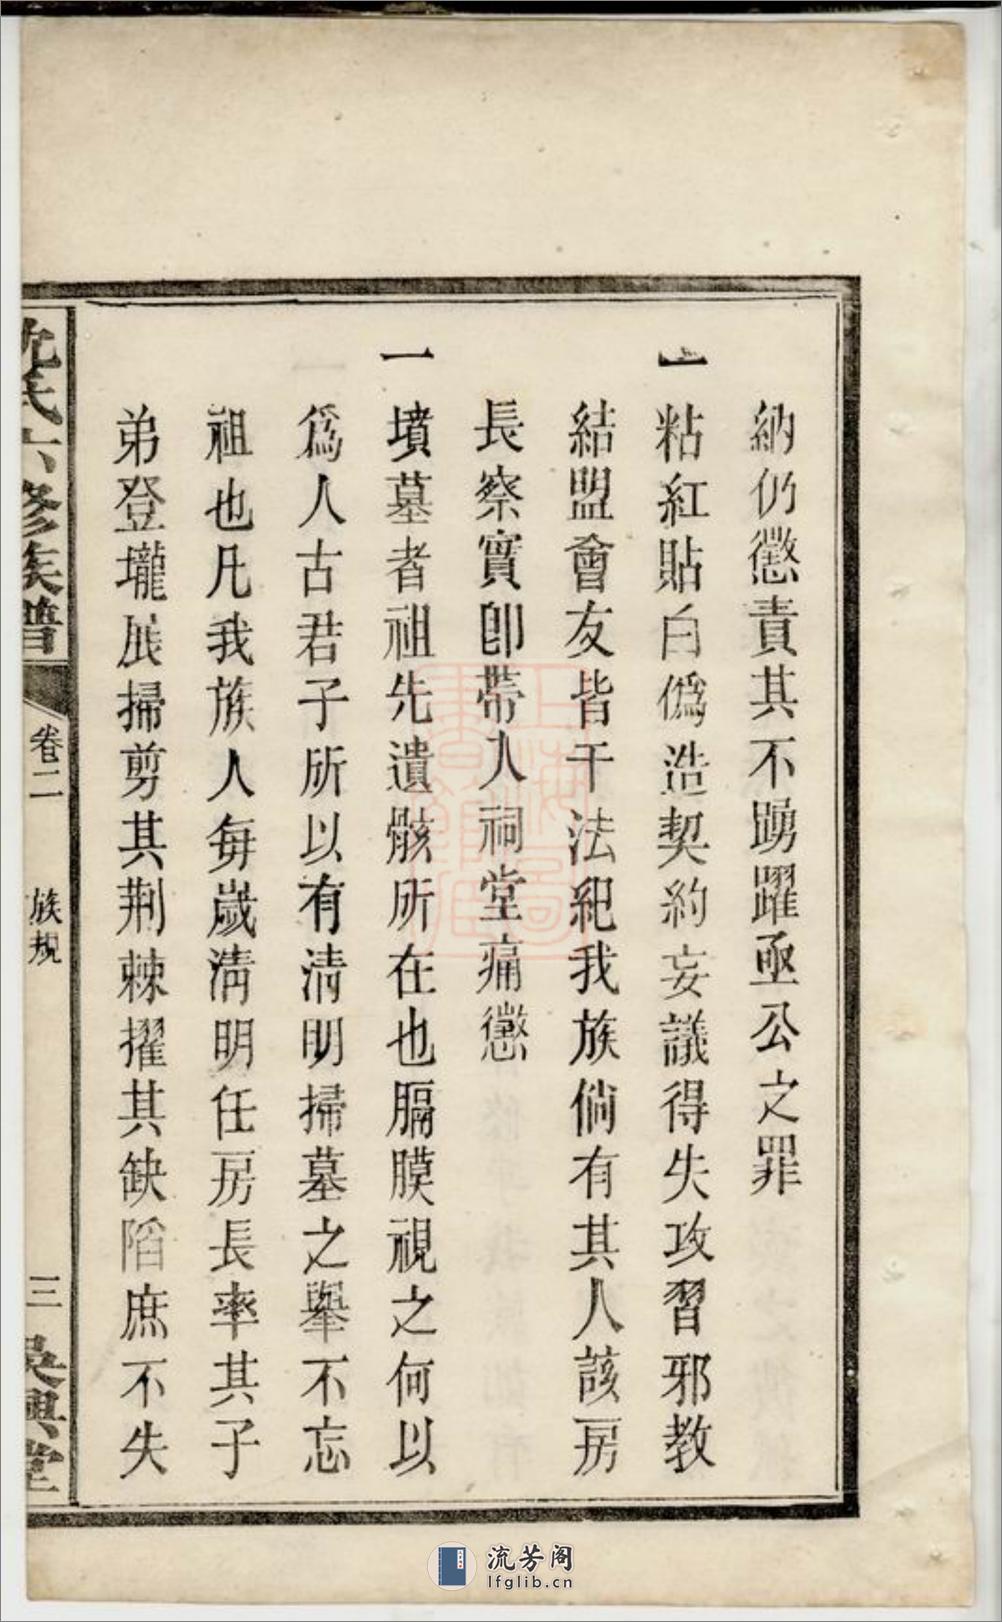 納仍懲責其不踴躍亟公之罪
一粘紅貼白僞造契約妄議得失攻習邪教
結盟會友皆干法紀我族倘有其人該房
長察實卽帶入祠堂痛懲
一墳墓者祖先遺骸所在也膈膜視之何以
爲人古君子所以有清明掃墓之舉不忘
祖也凡我族人每歲淸明任房長率其子
弟登壠展掃剪其荆棘擢其缺陷庶不失
沈氏六修族譜
卷二
族規
三
吳興堂
上海圖書館藏
流芳阁
lfglib.cn